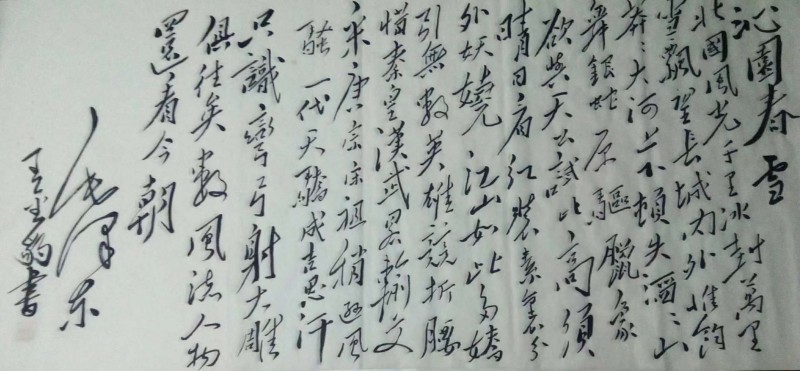 沁園春雪
北國風光千里冰封萬里
雪飄望長城內外惟餘
莽〻大河上下頓失滔〻山
舞銀蛇原驅臘象
欲與天公試比高須
晴日看紅裝素裹分
外妖嬈江山如此多嬌
引無數英雄競折腰
惜秦皇漢武略輸文
采唐宗宋祖稍遜風
騷一代天驕成吉思汗
只識彎弓射大雕
俱往矣數風流人物
還看今朝
毛澤东
王書